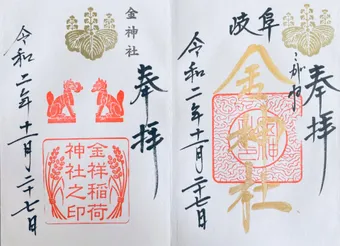 奉拝
こがね
岐阜
金神社
令和二年十一月二十七日
奉拝
金神社
金祥稲荷
神社之印
令和二年十一月二十七日